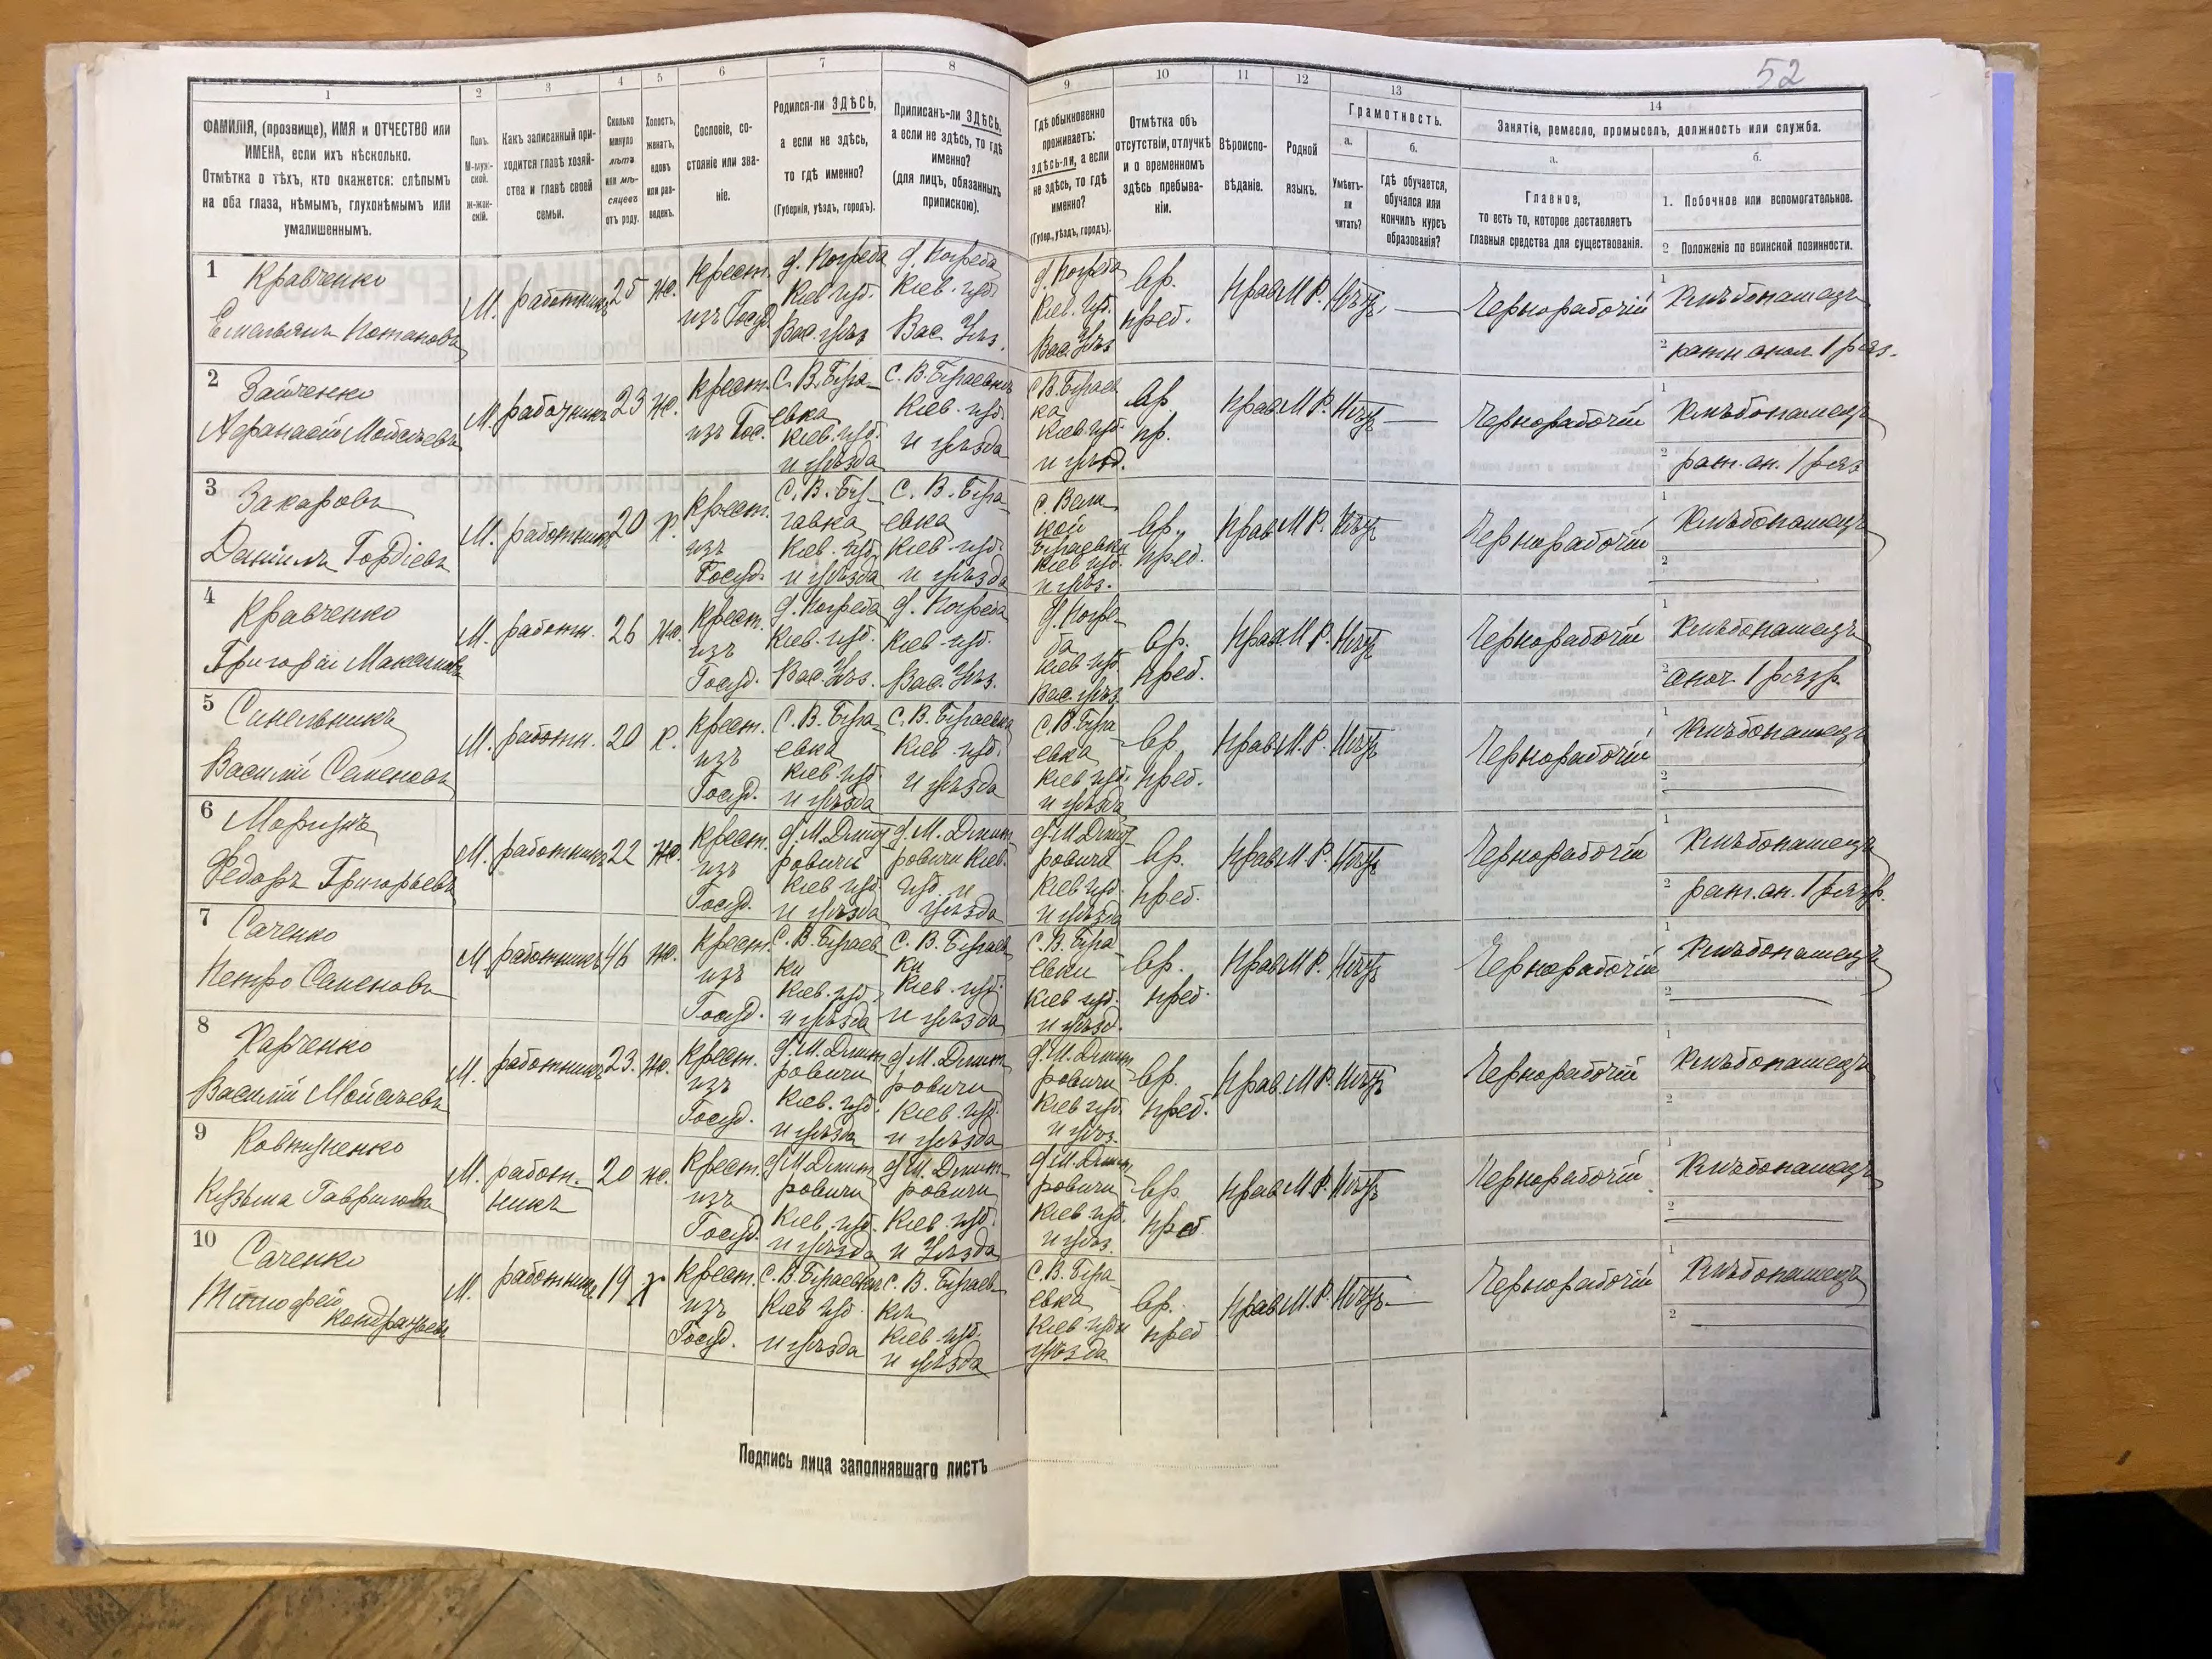 52
1
2
3
4
5
6
7
8
9
10
11
12
13
14
ФАМИЛІЯ, (прозвище), ИМЯ и ОТЧЕСТВО или
ИМЕНА, если ихъ нѣсколько.
Отмѣтка о тѣхъ, кто окажется: слѣпымъ
на оба глаза, нѣмымъ, глухонѣмымъ или
умалишеннымъ.
Полъ.
М-муж-
ской.
Ж-жен-
скій.
Какъ записанный при-
ходится главѣ хозяй-
ства и главѣ своей
семьи.
Сколько
минуло
лѣтъ
или мѣ-
сяцевъ
отъ роду.
Холостъ,
женатъ,
вдовъ
или раз-
веденъ.
Сословіе, со-
стояніе или зва-
ніе.
Родился-ли ЗДѢСЬ,
а если не здѣсь,
то гдѣ именно?
(Губернія, уѣздъ, городъ).
Приписанъ-ли ЗДѢСЬ,
а если не здѣсь, то гдѣ
именно?
(для лицъ, обязанныхъ
припискою).
Гдѣ обыкновенно
проживаетъ:
здѣсь-ли, а если
не здѣсь, то гдѣ
именно?
(Губер., уѣздъ, городъ).
Отмѣтка объ
отсутствіи, отлучкѣ
и о временномъ
здѣсь пребыва-
ніи.
Вѣроиспо-
вѣданіе.
Родной
языкъ.
Грамотность.
а.
Умѣетъ-
ли
читать?
б.
гдѣ обучается,
обучался или
кончилъ курсъ
образованія?
Занятіе, ремесло, промыселъ, должность или служба.
а.
Главное,
то есть то, которое доставляетъ
главныя средства для существованія.
б.
1. Побочное или вспомогательное.
2 Положеніе по воинской повинности.
1 Кравченко
Емельянъ Потаповъ
М. работникъ 25 же.
Крест.
изъ Госуд.
д. Погреба
Кіев губ.
Вас. уѣз
д. Погреба
Кіев. губ.
Вас. Уѣз.
д. Погреба
Кіев. губ.
Вас. Уѣз
Вр.
преб.
Прав. М. Р. Нѣтъ
Чернорабочій
1 Хлѣбопашецъ
2 ратн. опол. 1 раз.
2 Зайченко
Афанасій Мойсѣевъ
М. работникъ 23 же.
Крест.
изъ Гос.
С. В. Буга-
евка
Кіев. губ.
и уѣзда
С. В. Бугаевка
Кіев. губ.
и уѣзда
С В. Бугаев
ка
Кіев. губ
и уѣзд.
Вр.
пр.
Прав М. Р. Нѣтъ
Чернорабочій
1 Хлѣбопашецъ
2 рат. оп. 1 раз
3 Захаровъ
Даніилъ Гордіевъ
М. работникъ 20 х.
Крест.
изъ
Госуд.
С. В. Бу-
гавка
Кіев. губ.
и уѣзда
С. В. Буга-
евка
Кіев. губ.
и уѣзда
С. Вели
кой
Бугаевки
Кіев губ.
и уѣз.
Вр.
преб.
Прав М. Р. Нѣтъ
Чернорабочій
1 Хлѣбопашецъ
2
4 Кравченко
Григорій Максимовъ
М. работн. 26 же.
Крест.
изъ
Госуд.
д. Погреба
Кіев. губ.
Вас. Уѣз.
д. Погреба
Кіев. губ.
Вас. Уѣз.
д. Погре-
ба
Кіев губ.
Вас. уѣз
Вр.
преб.
Прав. М. Р. Нѣтъ
Чернорабочій
1 Хлѣбопашецъ
2 опол. 1 разр.
5 Синельникъ
Василій Семеновъ
М. работн. 20 х.
Крест.
изъ
Госуд.
С. В. Буга-
евка
Кіев губ.
и уѣзда
С. В. Бугаевка
Кіев губ.
и уѣзда
С. В. Буга
евка
Кіев губ.
и уѣзда
Вр.
преб.
Прав М. Р. Нѣтъ
Чернорабочій
1 Хлѣбопашецъ
2
6
Федоръ Григорьевъ
М. работникъ 22 же.
Крест.
изъ
Госуд.
д. М. Дмит
ровичи
Кіев губ.
и уѣзда
д. М. Дмит
ровичи Кіев.
губ. и
уѣзда
д. М Дмит
ровичи
Кіев губ.
и уѣзда
Вр.
преб.
Прав М. Р. Нѣтъ
Чернорабочій
1 Хлѣбопашецъ
2 рат. оп. 1 разр.
7 Саченко
Петро Семеновъ
М работникъ 46 же.
Крест.
изъ
Госуд.
С. В. Бугаев
ки
Кіев. губ.
и уѣзда
С. В. Бугаев
ки
Кіев. губ.
и уѣзда
С. В. Буга
евки
Кіев губ.
и уѣзд.
Вр.
преб.
Прав М. Р. Нѣтъ
Чернорабочій
1 Хлѣбопашецъ
2
8 Харченко
Василій Мойсѣевъ
М. работникъ 23. же.
Крест.
изъ
Госуд.
д. М. Дмит
ровичи
Кіев. губ.
и уѣзда
д М. Дмит
ровичи
Кіев. губ.
и уѣзда
д М. Дмит
ровичи
Кіев губ.
и уѣз.
Вр.
преб.
Прав. М Р. Нѣтъ
Чернорабочій
1 Хлѣбопашецъ
2
9
Кузьма Гавриловъ
М. работ.
никъ
20 же.
Крест.
изъ
Госуд.
д М Дмит
ровичи
Кіев. губ.
и уѣзда
д М. Дмит
ровичи
Кіев. губ.
и Уѣзда
д М. Дмит
ровичи
Кіев губ.
и уѣз.
Вр.
преб
Прав М. Р. Нѣтъ
Чернорабочій
1 Хлѣбопашецъ
2
10 Саченко
Тимофей
Кондратьевъ
М. работникъ 19 х
Крест.
изъ
Госуд.
С. В. Бугаевки
Кіев губ.
и уѣзда
С. В. Бугаев
ки
Кіев губ.
и уѣзда
С. В. Буга
евка
Кіев губ и
уѣзда
Вр.
преб
Прав М. Р. Нѣтъ
Чернорабочій
1 Хлѣбопашецъ
2
Подпись лица заполнявшаго листъ